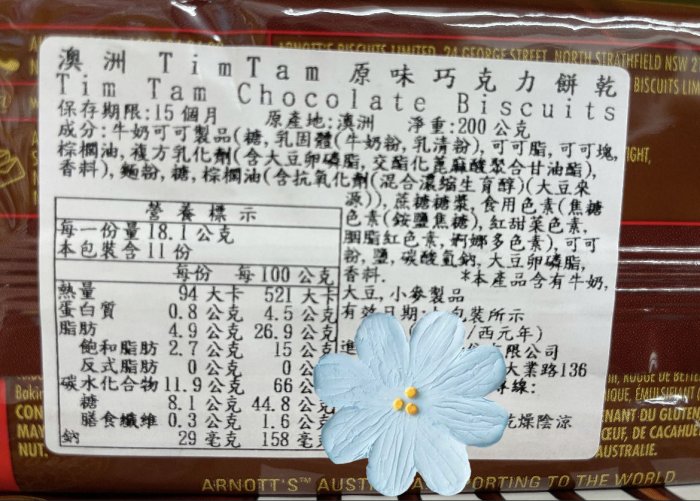 ARNOTT'S BISCUITS LIMITED, 24 GEORGE STREET, NORTH STRATHFIELD NSW
BISCUITS LIM
澳洲 TimTam 原味巧克力餅乾
Tim Tam Chocolate Biscuits
保存期限:15個月 原產地:澳洲 淨重:200公克
成分:牛奶可可製品(糖,乳固體(牛奶粉,乳清粉),可可脂,可可塊,
棕櫚油,複方乳化劑(含大豆卵磷脂,交酯化蓖麻酸聚合甘油酯),
香料),麵粉,糖,棕櫚油(含抗氧化劑(混合濃縮生育醇)(大豆來
源)),蔗糖糖漿,食用色素(焦糖
色素(銨鹽焦糖),紅甜菜色素,
胭脂紅色素,婀娜多色素),可可
粉,鹽,碳酸氫鈉,大豆卵磷脂,
香料. *本產品含有牛奶,
大豆,小麥製品
營養標示
每一份量18.1公克
本包裝含11份
每份 每100公克
熱量 94大卡 521大卡
蛋白質 0.8公克 4.5公克
脂肪 4.9公克 26.9公克
飽和脂肪 2.7公克 15公克
反式脂肪 0公克 0公
碳水化合物 11.9公克 66公
糖 8.1公克 44.8公
膳食纖維 0.3公克 1.6公
鈉 29毫克 158毫
有效日期:
包裝所示
/西元年)
有限公司
大業路136
專線:
乾燥陰涼
NANT DU GLUTEN
ŒUF, DE CACAHUÈ
CON
MAY
NUT.
ARNOTT'S™ AUST
PORTING TO THE WORLD.
AUSTRALIE.